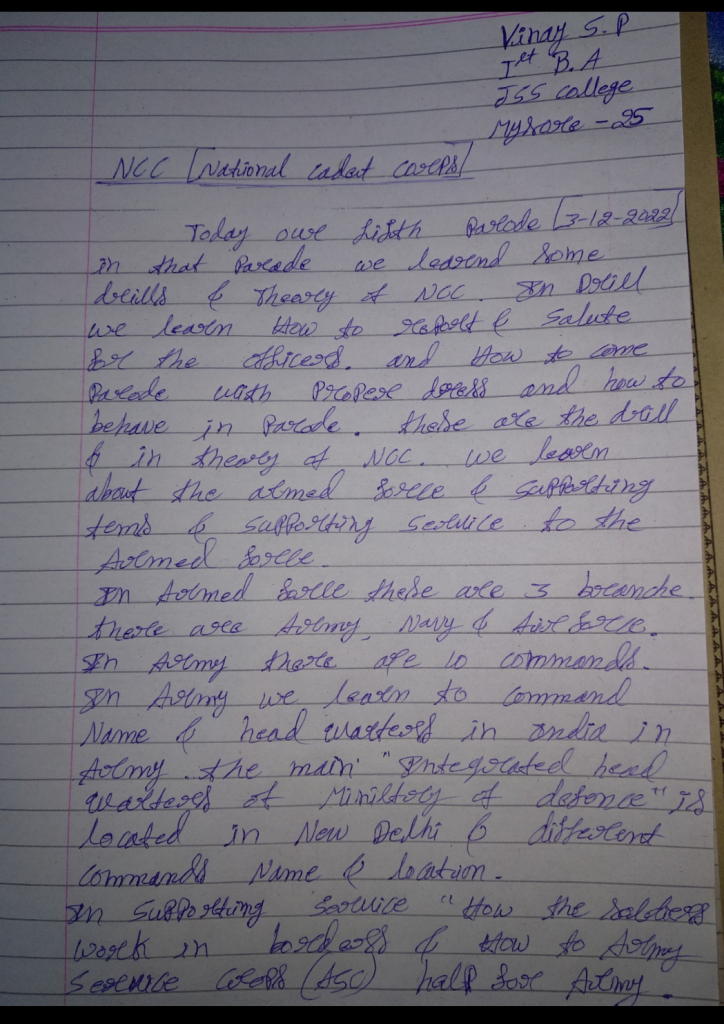 Vinay S.P
Ist B.A
JSS College
Mysore - 25
NCC [National cadat corps]
Today our fifth Parade [3-12-2022]
in that Parade we learend some
drills & Theory of NCC. In Drill
we learn How to report & Salute
for the officers. and How to come
Parade with Proper dress and how to
behave in Parade. these are the drill
& in theory of NCC. we learn
about the armed force & supporting
tems & supporting service to the
Armed force.
In Armed force these are 3 branche.
there are Army, Navy & Air force.
In Army there are 10 commands.
In Army we learn to command
Name & head quarters in India in
Army. the main "Integrated head
quarters of Ministory of defence" is
located in New Delhi & different
commands Name & location.
In supporting service "How the
work in borders & How to Army
Service corps (ASC) help for Army.